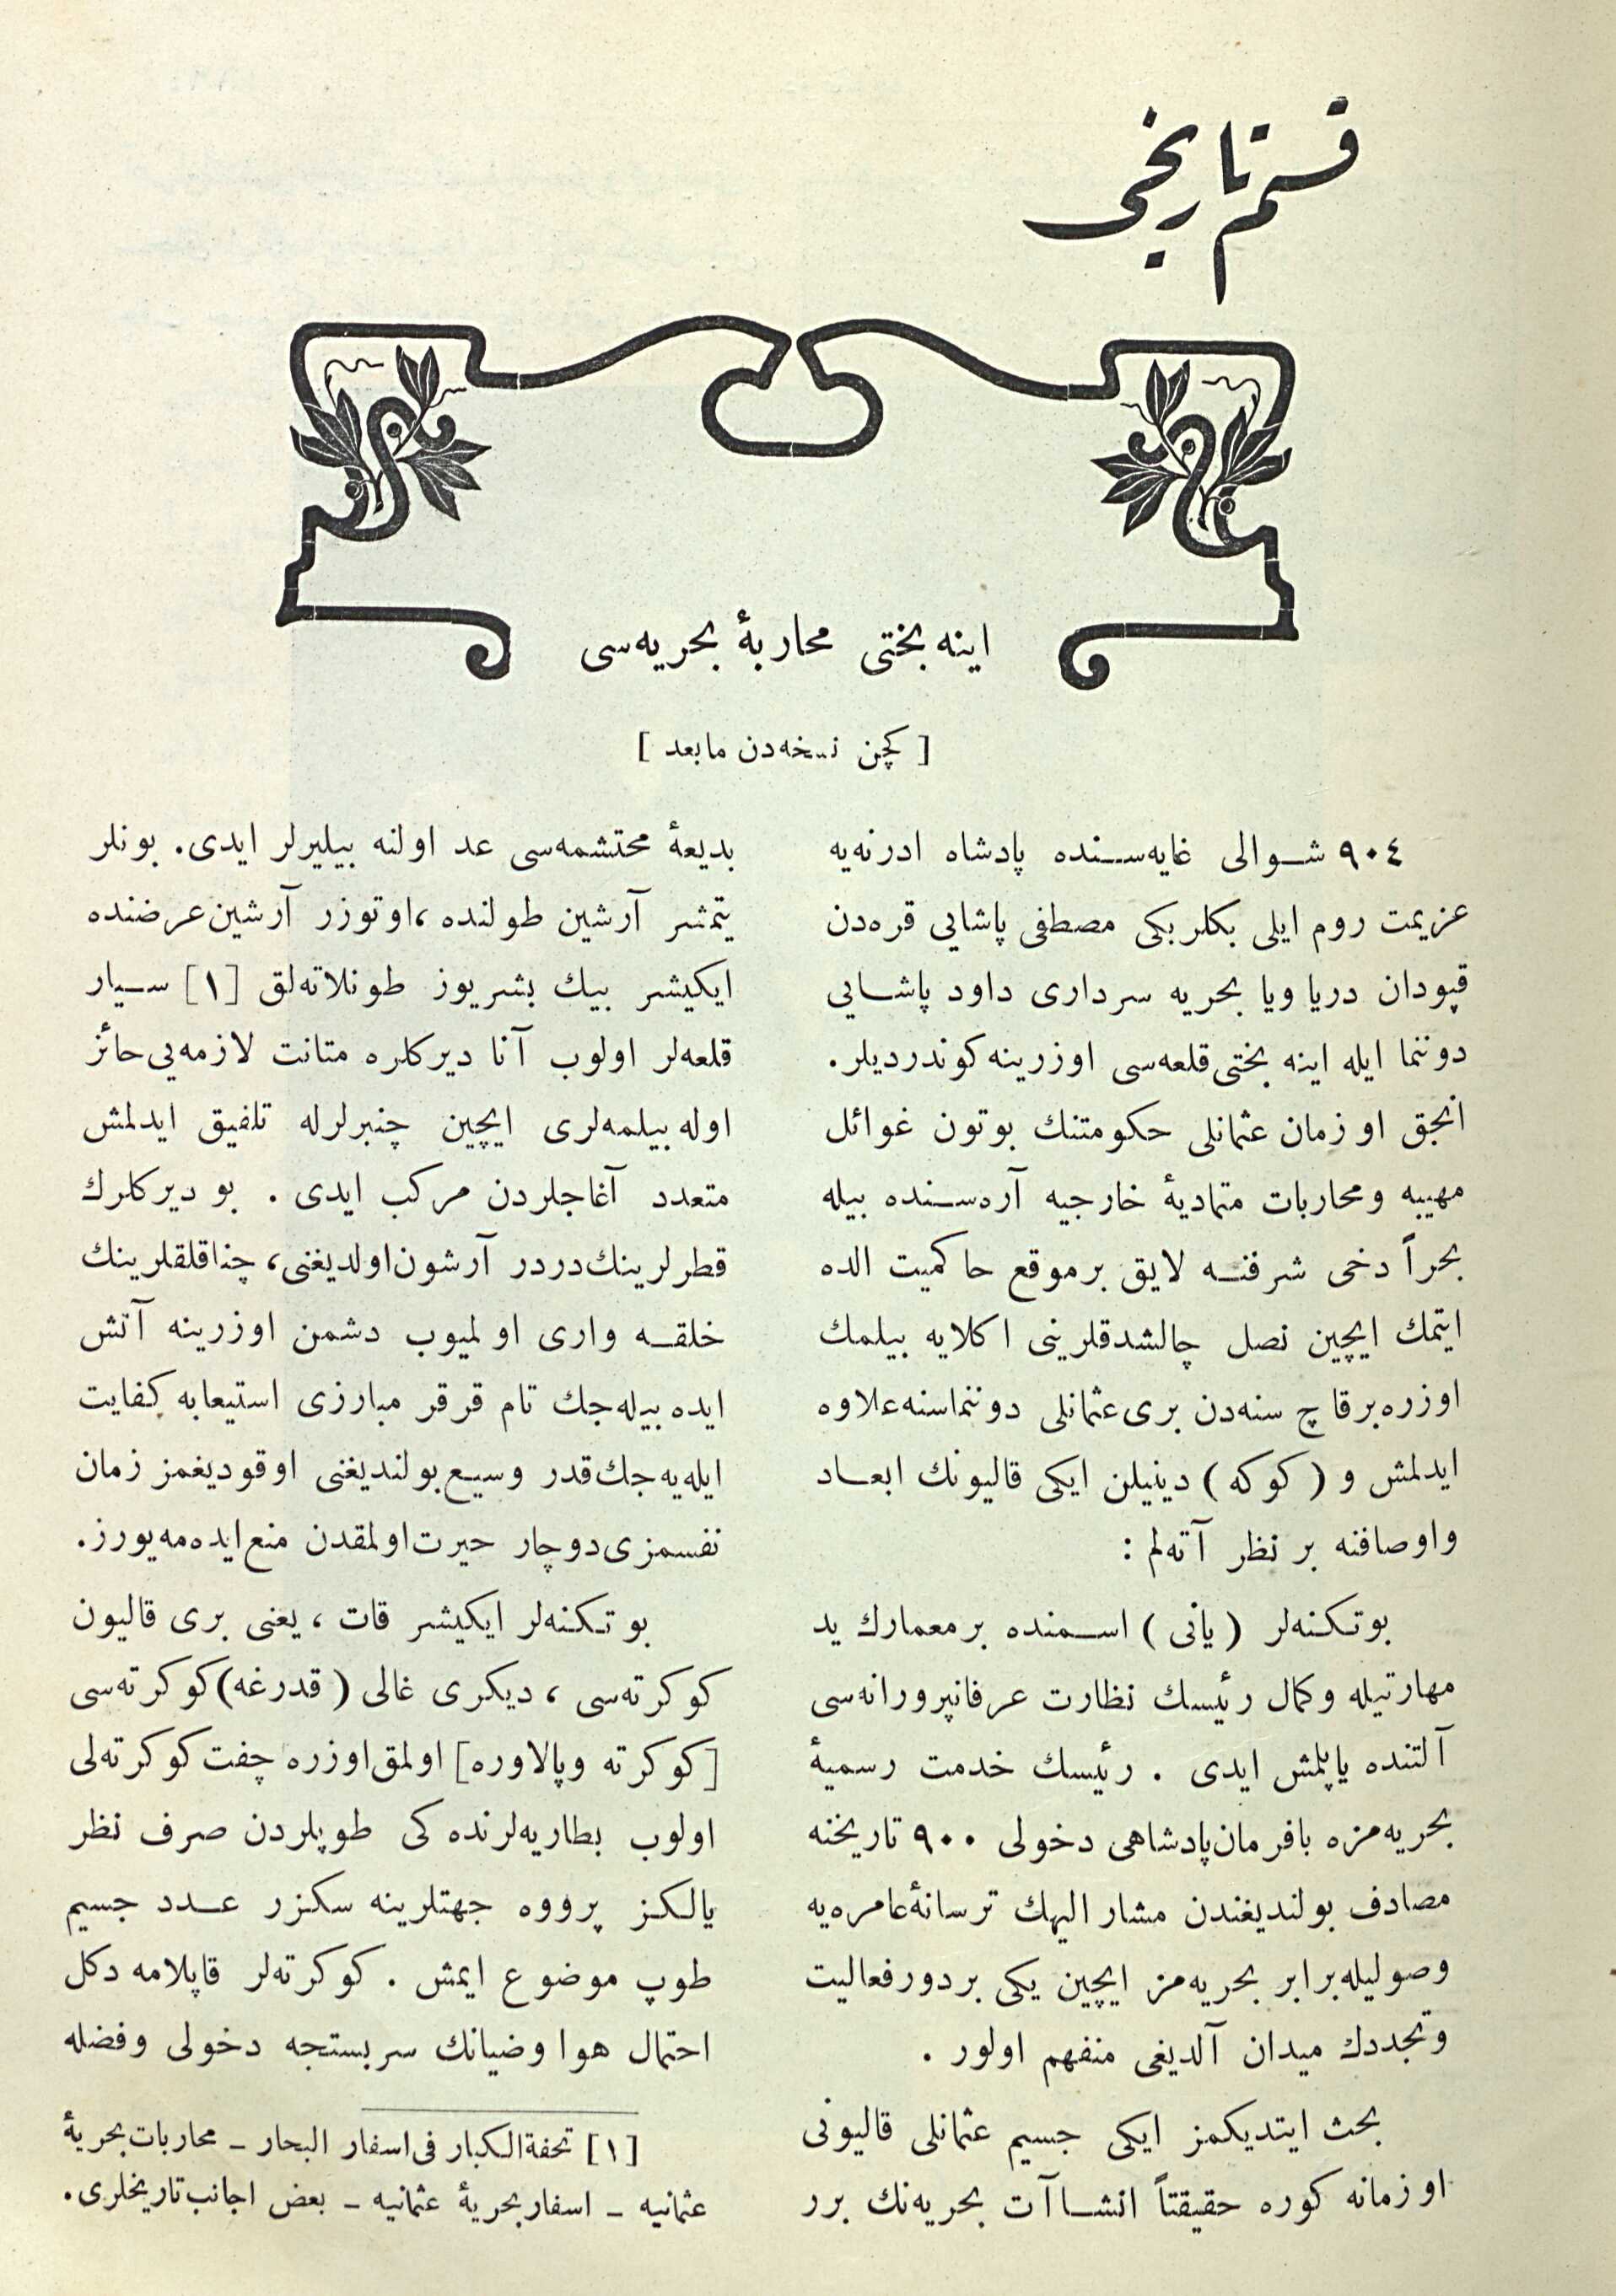 قسم تاریخی
اینه بختی محاربهٔ بحریه‌سی
[ كچن نسخه‌دن مابعد ]
٩٠٤ شوالی غایه‌سنده پادشاه ادرنه‌یه
عزیمت روم ایلی بكلربكی مصطفی پاشایی قره‌دن
قپودان دریا ویا بحریه سرداری داود پاشایی
دوننما ایله اینه بختی قلعه‌سی اوزرینه كوندردیلر.
انجق او زمان عثمانلی حكومتنك بوتون غوائل
مهیبه ومحاربات متمادیهٔ خارجیه آره‌سنده بیله
بحراً دخی شرفنه لایق برموقع حاكمیت الده
ایتمك ایچین نصل چالشدقلرینی اكلایه بیلمك
اوزره برقاچ سنه‌دن بری عثمانلی دوننماسنه علاوه
ایدلمش و ( كوكه ) دینیلن ایكی قالیونك ابعاد
واوصافنه بر نظر آته‌لم :
بوتكنه‌لر ( یانی ) اسمنده برمعمارك ید
مهارتیله وكمال رئیسك نظارت عرفانپرورانه‌سی
آلتنده یاپلمش ایدی . رئیسك خدمت رسمیهٔ
بحریه‌مزه بافرمان پادشاهی دخولی ٩٠٠ تاریخنه
مصادف بولندیغندن مشار الیهك ترسانهٔ عامره‌یه
وصولیله برابر بحریه‌مز ایچین یكی بردور فعالیت
وتجددك میدان آلدیغی منفهم اولور .
بحث ایتدیكمز ایكی جسیم عثمانلی قالیونی
او زمانه كوره حقیقتاً انشاآت بحریه‌نك برر
بدیعهٔ محتشمه‌سی عد اولنه بیلیرلر ایدی. بونلر
یتمشر آرشین طولنده ، اوتوزر آرشین عرضنده
ایكیشر بیك بشریوز طونلاته‌لق [١] سیار
قلعه‌لر اولوب آنا دیركلره متانت لازمه‌یی حائز
اوله بیلمه‌لری ایچین چنبرلرله تلفیق ایدلمش
متعدد آغاجلردن مركب ایدی . بو دیركلرك
قطرلرینك دردر آرشون اولدیغنی، چناقلقلرینك
خلقه واری اولمیوب دشمن اوزرینه آتش
ایده بیله‌جك تام قرقر مبارزی استیعابه كفایت
ایله‌یه‌جك قدر وسیع بولندیغنی اوقودیغمز زمان
نفسمزی دوچار حیرت اولمقدن منع ایده‌مه‌یورز.
بو تكنه‌لر ایكیشر قات ، یعنی بری قالیون
كوكرته‌سی ، دیكری غالی ( قدرغه ) كوكرته‌سی
[كوكرته وپالاوره] اولمق اوزره چفت كوكرته‌لی
اولوب بطاریه‌لرنده‌كی طوپلردن صرف نظر
یالكز پرووه جهتلرینه سكزر عدد جسیم
طوپ موضوع ایمش . كوكرته‌لر قاپلامه دكل
احتمال هوا وضیانك سربستجه دخولی وفضله
[١] تحفةالكبار فی اسفار البحار ـ محاربات بحریهٔ
عثمانیه ـ اسفار بحریهٔ عثمانیه ـ بعض اجانب تاریخلری.